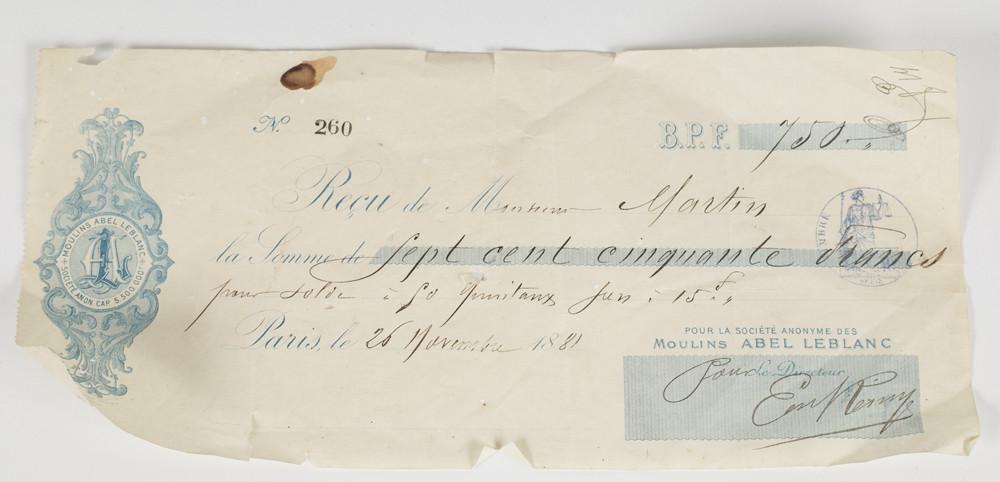 No. 260
B.P.F. 750.-
Reçu de Monsieur Martin
la Somme de Sept cent cinquante francs
pour solde à 50 Quintaux 15 F
Paris, le 26 Novembre 188
MOULINS ABEL LEBLANC
SOCIÉTÉ ANON CAP. 5.500.000
POUR LA SOCIÉTÉ ANONYME DES
MOULINS ABEL LEBLANC
Pour Le Directeur